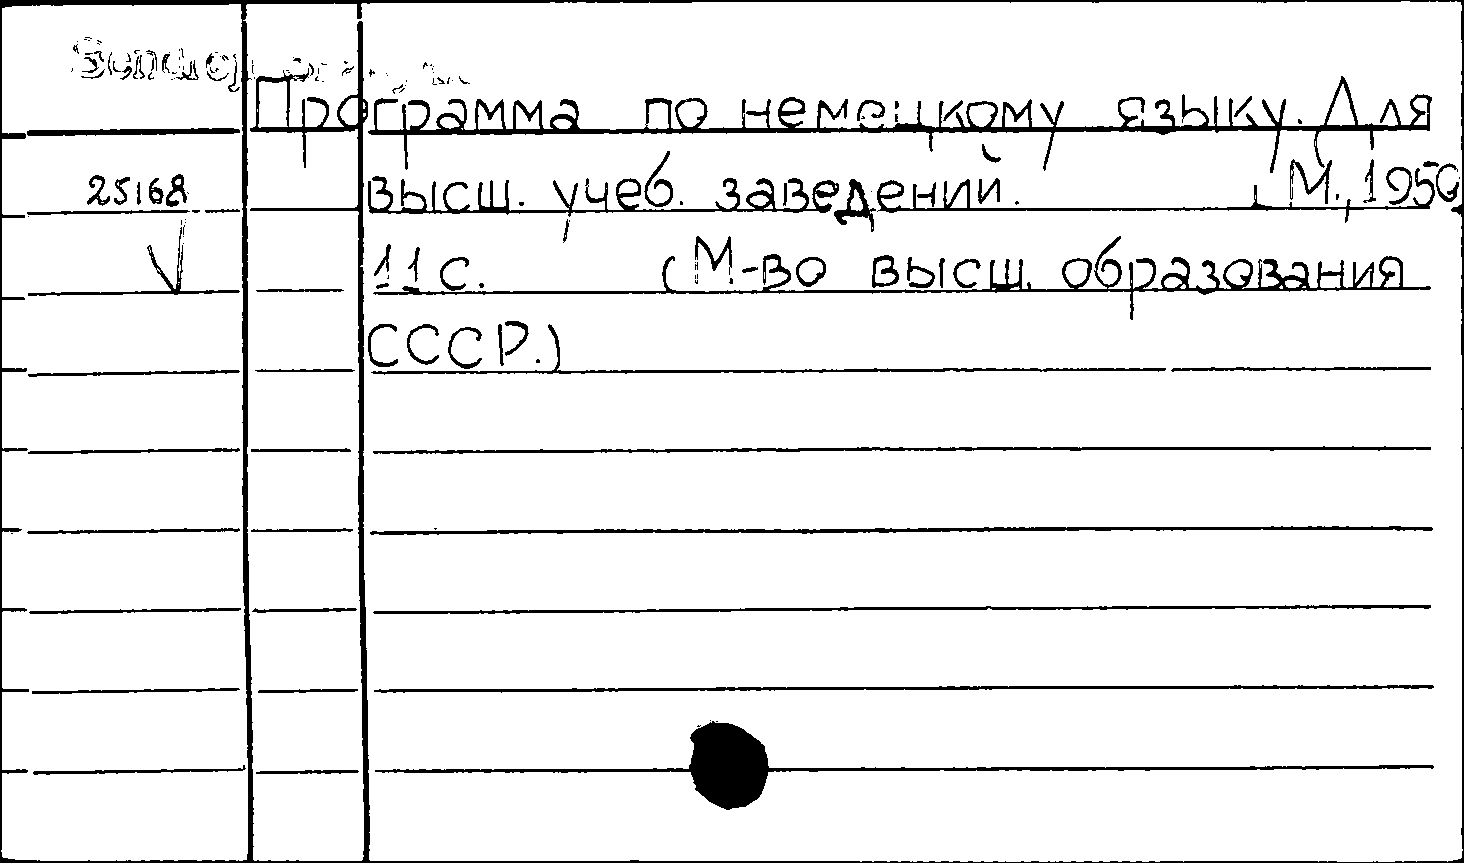 Программа по немецкому языку. Для
25168 высш. учеб. заведений. М., 1950.
11 с. (М-во высш. образования
СССР.)